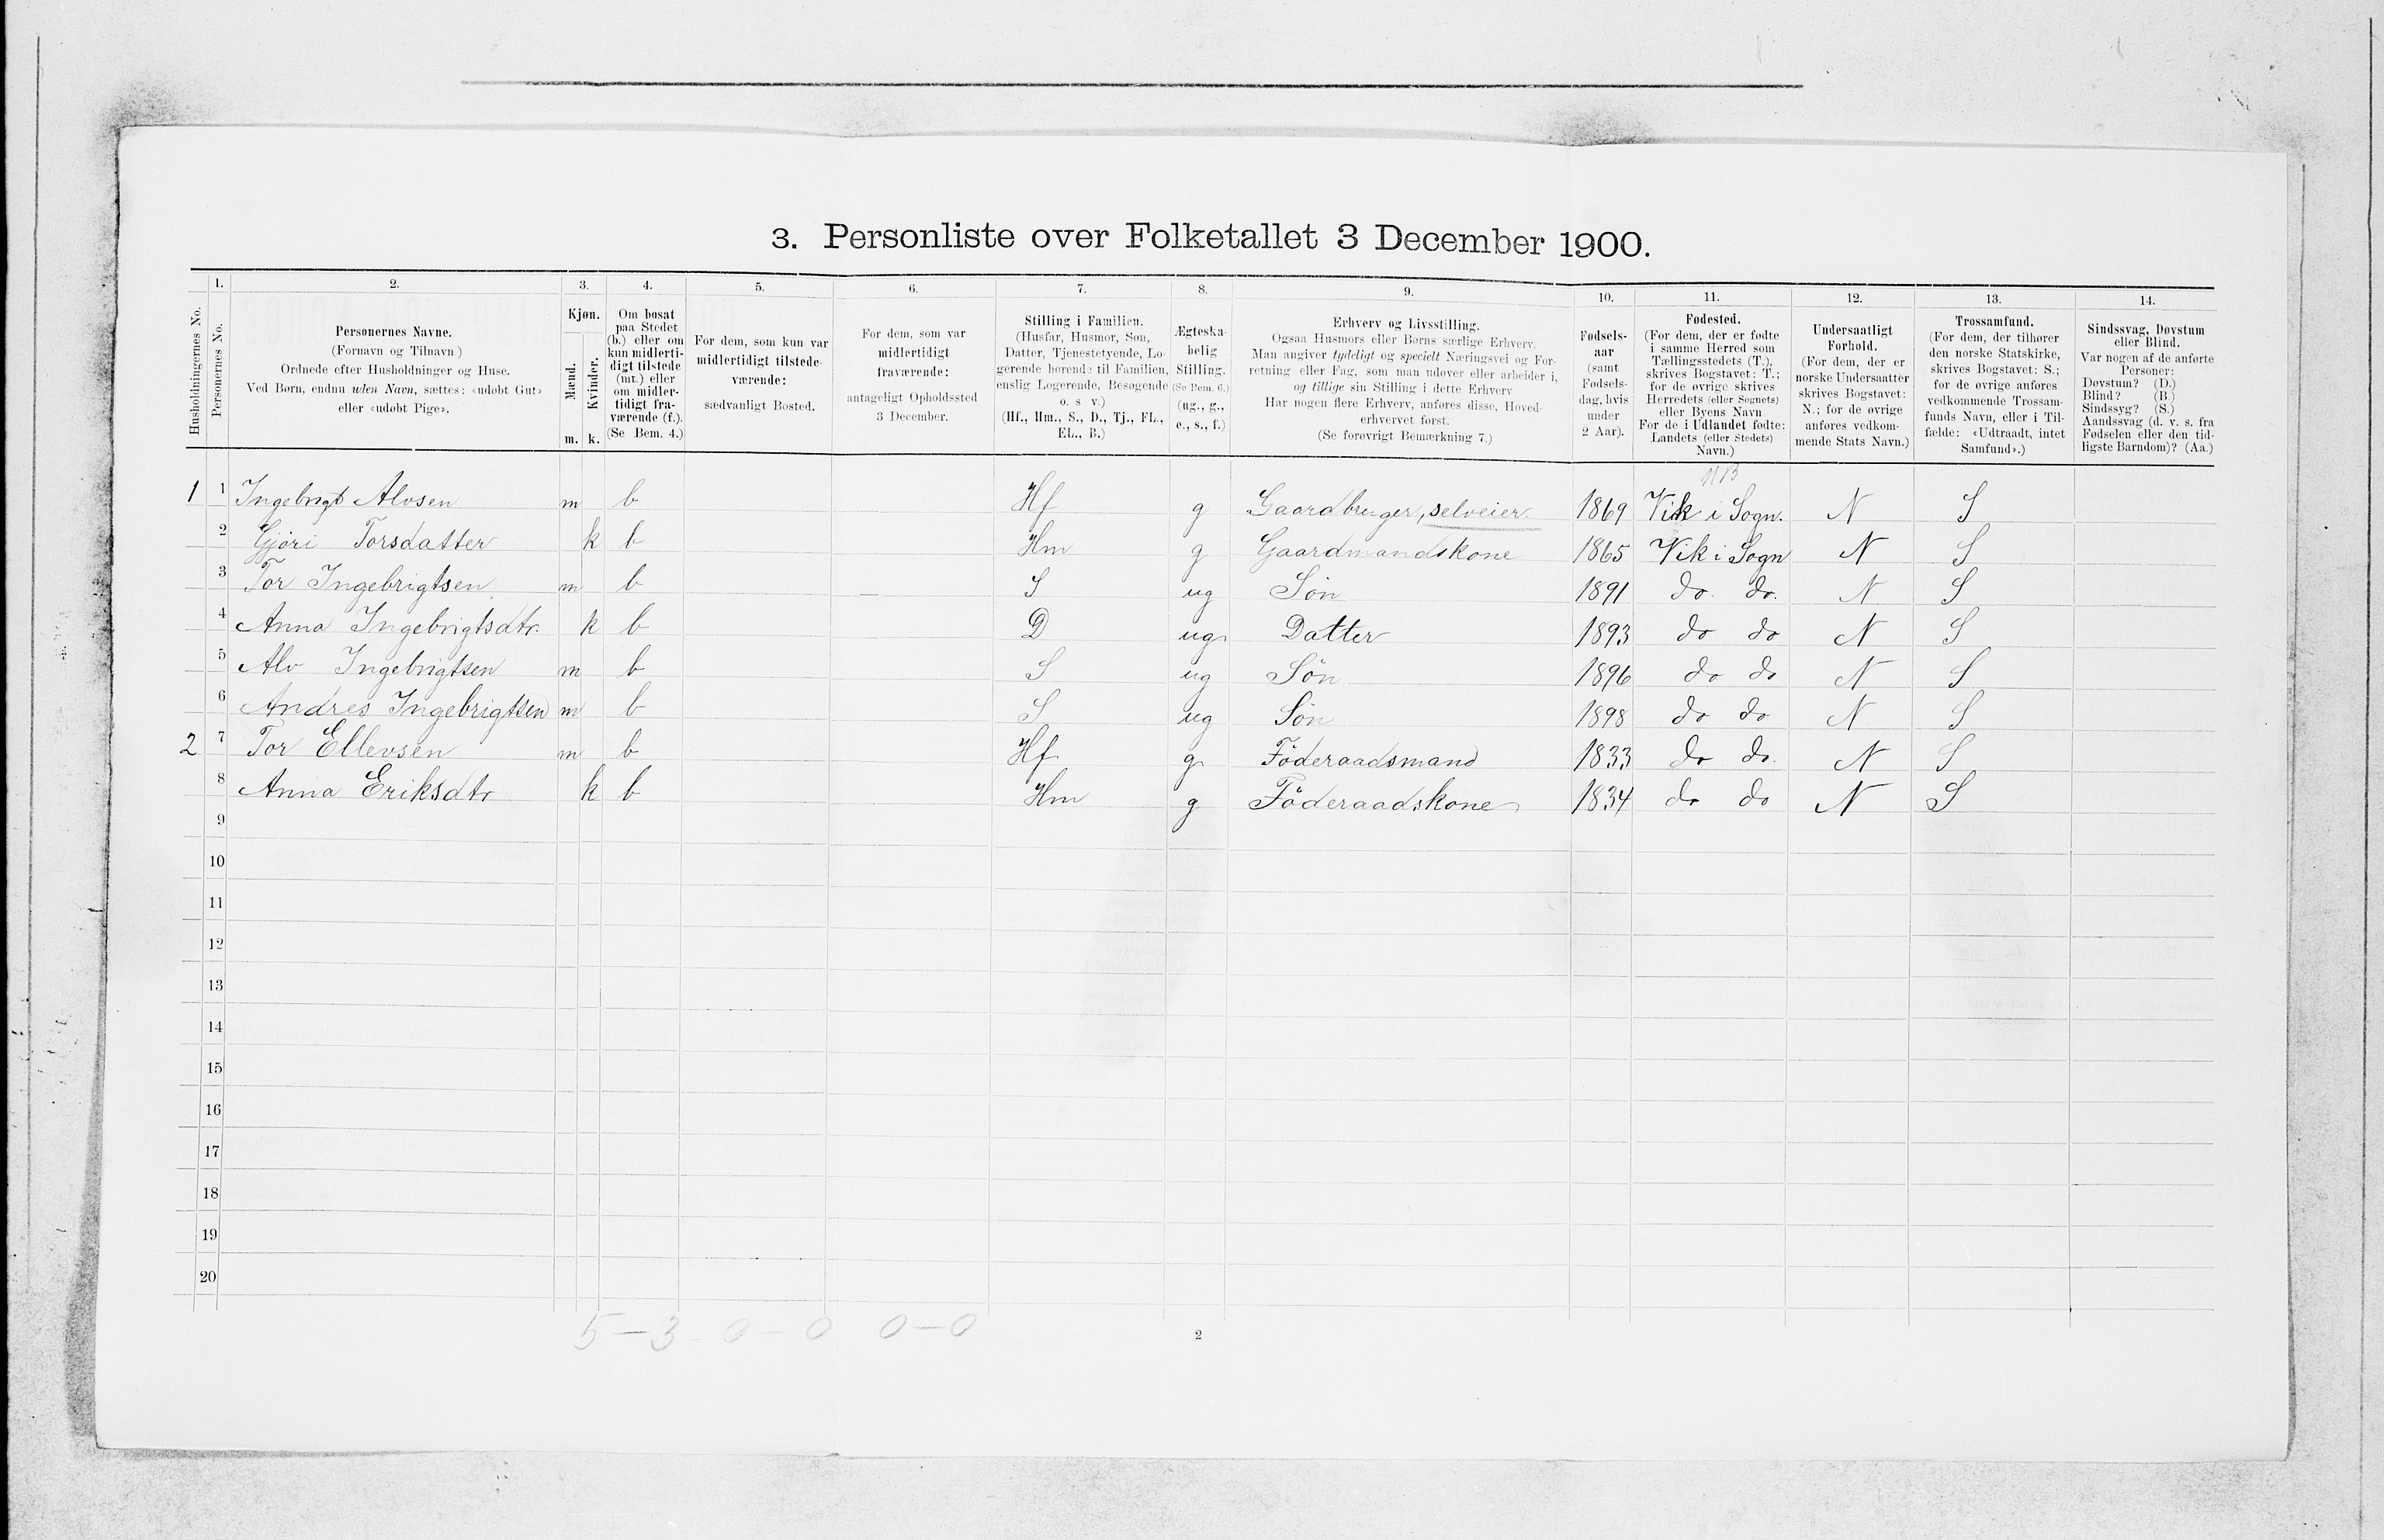 3. Personliste over Folketallet 3 December 1900.
1. 2. 3. 4. 5. 6. 7. 8. 9. 10. 11. 12. 13. 14.
Husholdningernes No.
Personernes No.
Personernes Navne.
(Fornavn og Tilnavn)
Ordnede efter Husholdninger og Huse.
Ved Børn, endnu uden Navn, sættes: «udøbt Gut»
eller «udøbt Pige».
Kjøn.
Mænd.
Kvinder.
m. k.
Om bosat
paa Stedet
(b.) eller om
kun midlerti-
digt tilstede
(mt.) eller
om midler-
tidigt fra-
værende (f.).
(Se Bem. 4.)
For dem, som kun var
midlertidigt tilstede-
værende:
sædvanligt Bosted.
For dem, som var
midlertidigt
fraværende:
antageligt Opholdssted
3 December.
Stilling i Familien.
(Husfar, Husmor, Søn,
Datter, Tjenestetyende, Lo-
gerende hørende til Familien,
enslig Logerende, Besøgende
o. s v.)
(Hf., Hm., S., D., Tj., FL.,
EL., B.)
Ægteska-
belig
Stilling.
(Se Bem. 6.)
(ug., g.,
e., s., f.)
Erhverv og Livsstilling.
Ogsaa Husmors eller Børns særlige Erhverv.
Man angiver tydeligt og specielt Næringsvei og For-
retning eller Fag, som man udøver eller arbeider i,
og tillige sin Stilling i dette Erhverv
Har nogen flere Erhverv, anføres disse, Hoved-
erhvervet først.
(Se forøvrigt Bemærkning 7.)
Fødsels-
aar
(samt
Fødsels-
dag, hvis
under
2 Aar).
Fødested.
(For dem, der er fødte
i samme Herred som
Tællingsstedets (T.),
skrives Bogstavet: T.;
for de øvrige skrives
Herredets (eller Sognets)
eller Byens Navn
For de i Udlandet fødte:
Landets (eller Stedets)
Navn.)
Undersaatligt
Forhold.
(For dem, der er
norske Undersaatter
skrives Bogstavet:
N.; for de øvrige
anføres vedkom-
mende Stats Navn.)
Trossamfund.
(For dem, der tilhører
den norske Statskirke,
skrives Bogstavet: S.;
for de øvrige anføres
vedkommende Trossam-
funds Navn, eller i Til-
fælde: «Udtraadt, intet
Samfund».)
Sindssvag, Døvstum
eller Blind.
Var nogen af de anførte
Personer:
Døvstum? (D.)
Blind? (B.)
Sindssyg? (S.)
Aandssvag (d. v. s. fra
Fødselen eller den tid-
ligste Barndom)? (Aa.)
1 1 Ingebrigt Alvsen m b Hf g Gaardbruger, selveier. 1869 Vik i Sogn. N S
2 Gjøri Torsdatter k b Hm g Gaardmandskone 1865 Vik i Sogn N S
3 Tor Ingebrigtsen m b S ug Søn 1891 do. do. N S
4 Anna Ingebrigtsdtr. k b D ug Datter 1893 do do N S
5 Alv Ingebrigtsen m b S ug Søn 1896 do do N S
6 Andres Ingebrigtsen m b S ug Søn 1898 do do N S
2 7 Tor Ellevsen m b Hf g Föderaadsmand 1833 do do. N S
8 Anna Eriksdtr k b Hm g Föderaadskone 1834 do do N S
9
10
11
12
13
14
15
16
17
18
19
20
5-3 0-0 0-0
2